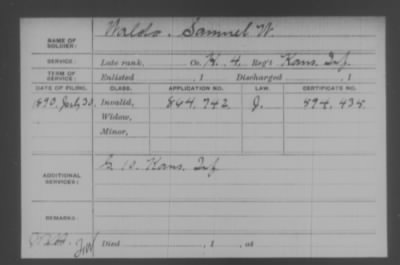 NAME OF SOLDIER: Waldo, Samuel W.
SERVICE: Late rank, Co. K, 4, Reg't Kans. Inf.
TERM OF SERVICE: Enlisted , 1 Discharged , 1
DATE OF FILING. CLASS. APPLICATION NO. LAW. CERTIFICATE NO.
1890, July 30, Invalid, 864,742 J. 894,438
Widow,
Minor,
ADDITIONAL SERVICES: G 10. Kans. Inf
REMARKS:
Died , 1 , at